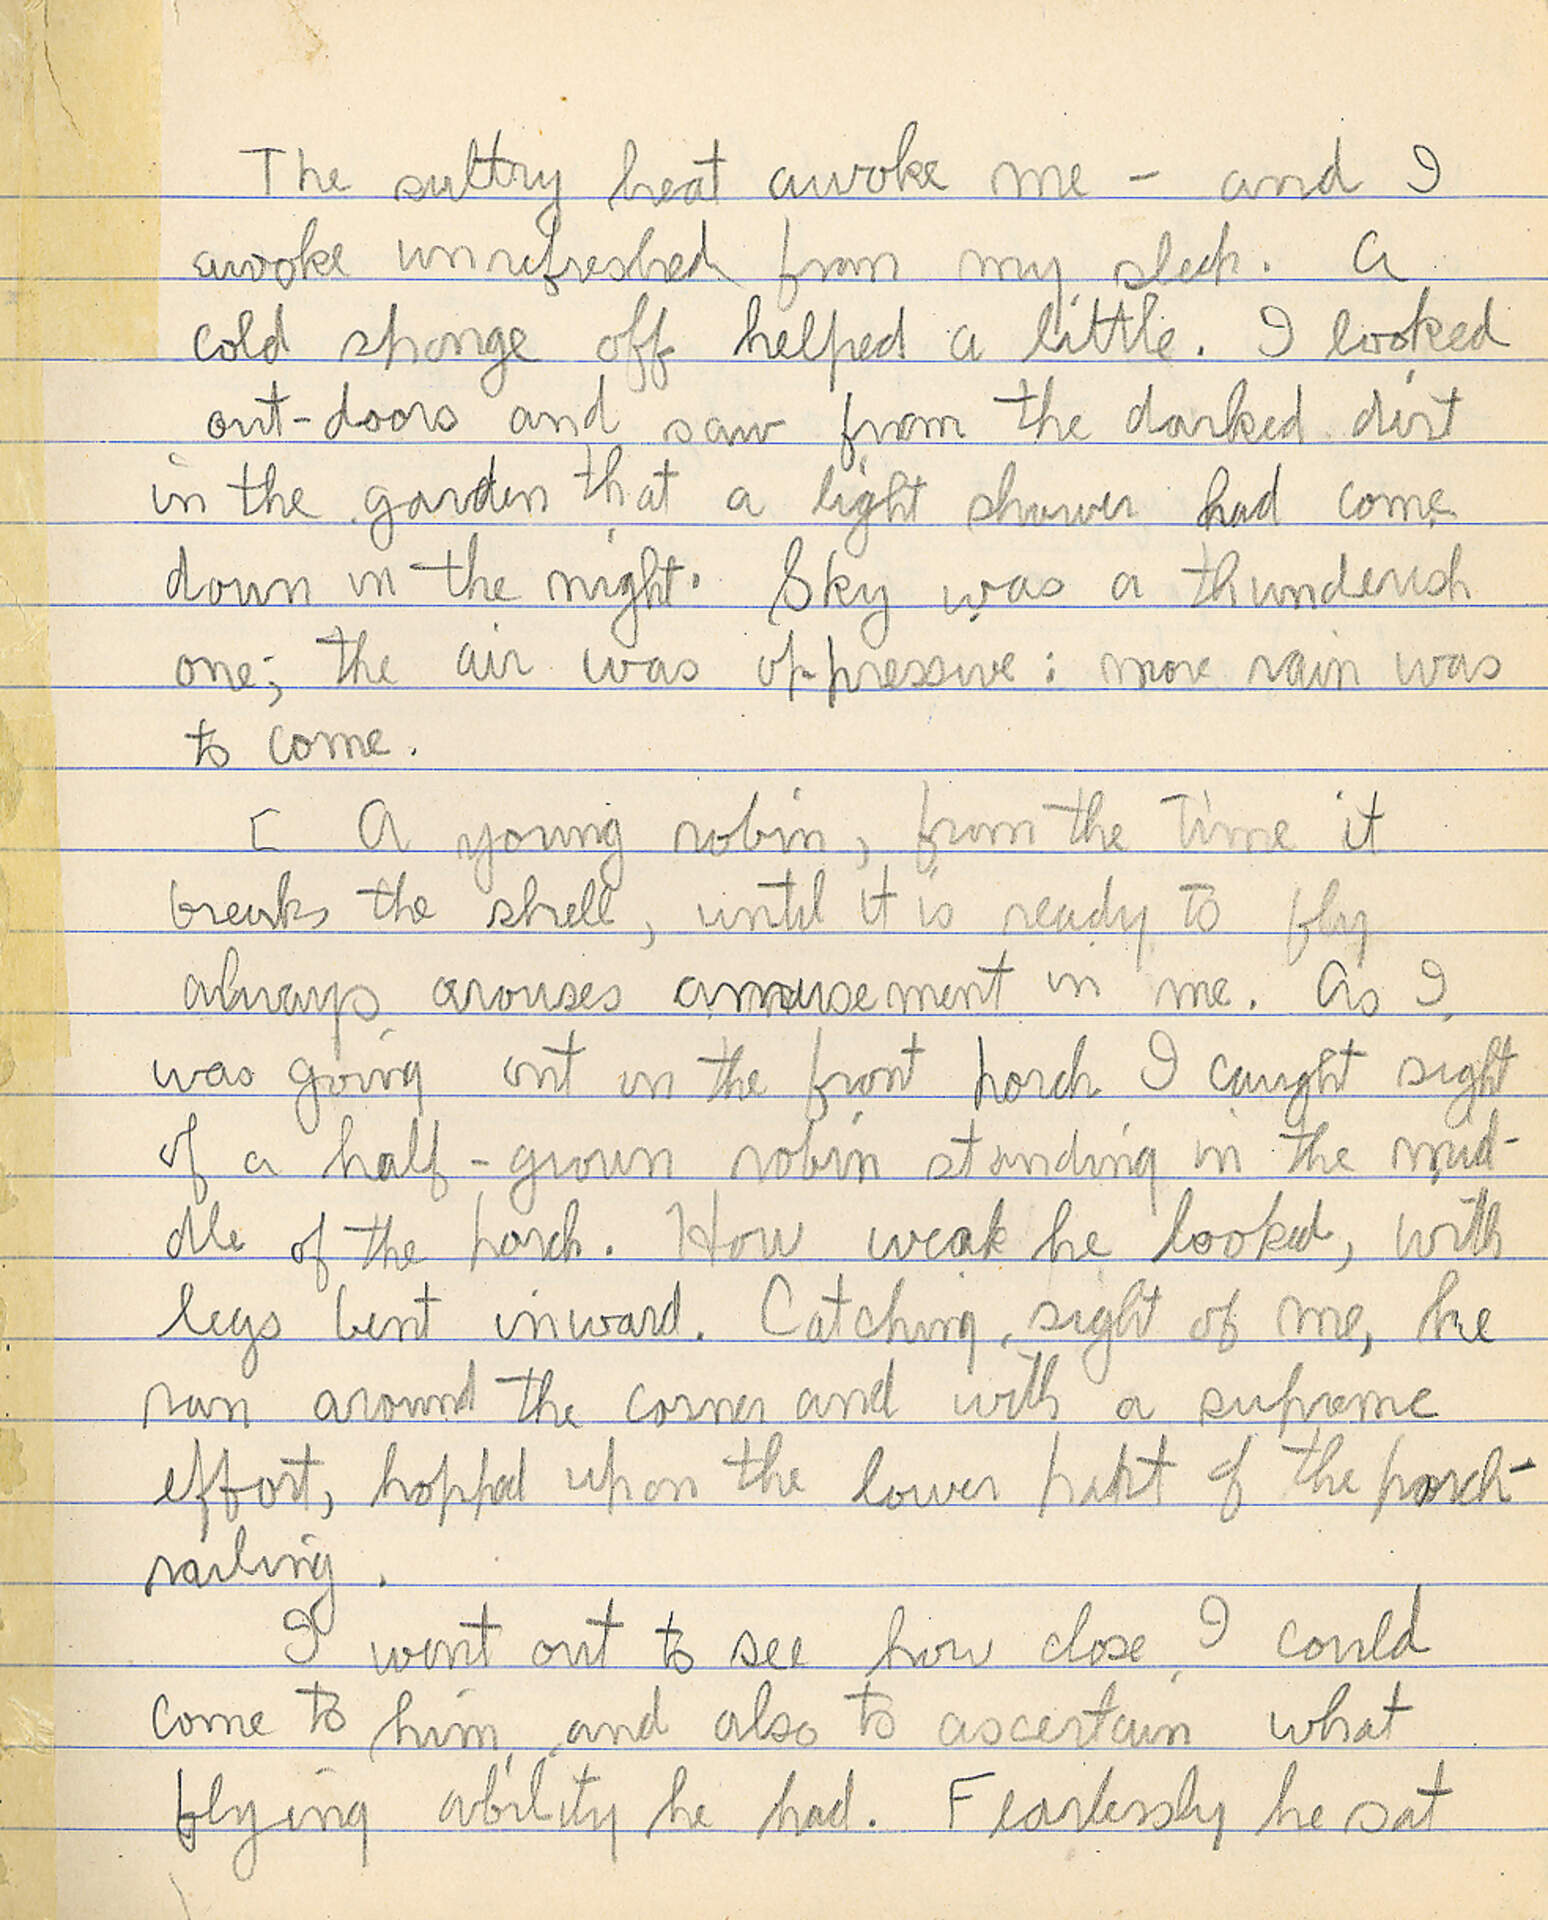 The sultry heat awoke me - and I
awoke unrefreshed from my sleep. A
cold sponge off helped a little. I looked
out-doors and saw from the darked dirt
in the garden that a light shower had come
down in the night. Sky was a thunderish
one; the air was oppressive: more rain was
to come.
[ A young robin, from the time it
breaks the shell, until it is ready to fly
always arouses amusement in me. As I
was going out in the front porch I caught sight
of a half-grown robin standing in the mid-
dle of the porch. How weak he looked, with
legs bent inward. Catching sight of me, he
ran around the corner and with a supreme
effort, hopped upon the lower part of the porch-
railing.
I went out to see how close I could
come to him, and also to ascertain what
flying ability he had. Fearlessly he sat